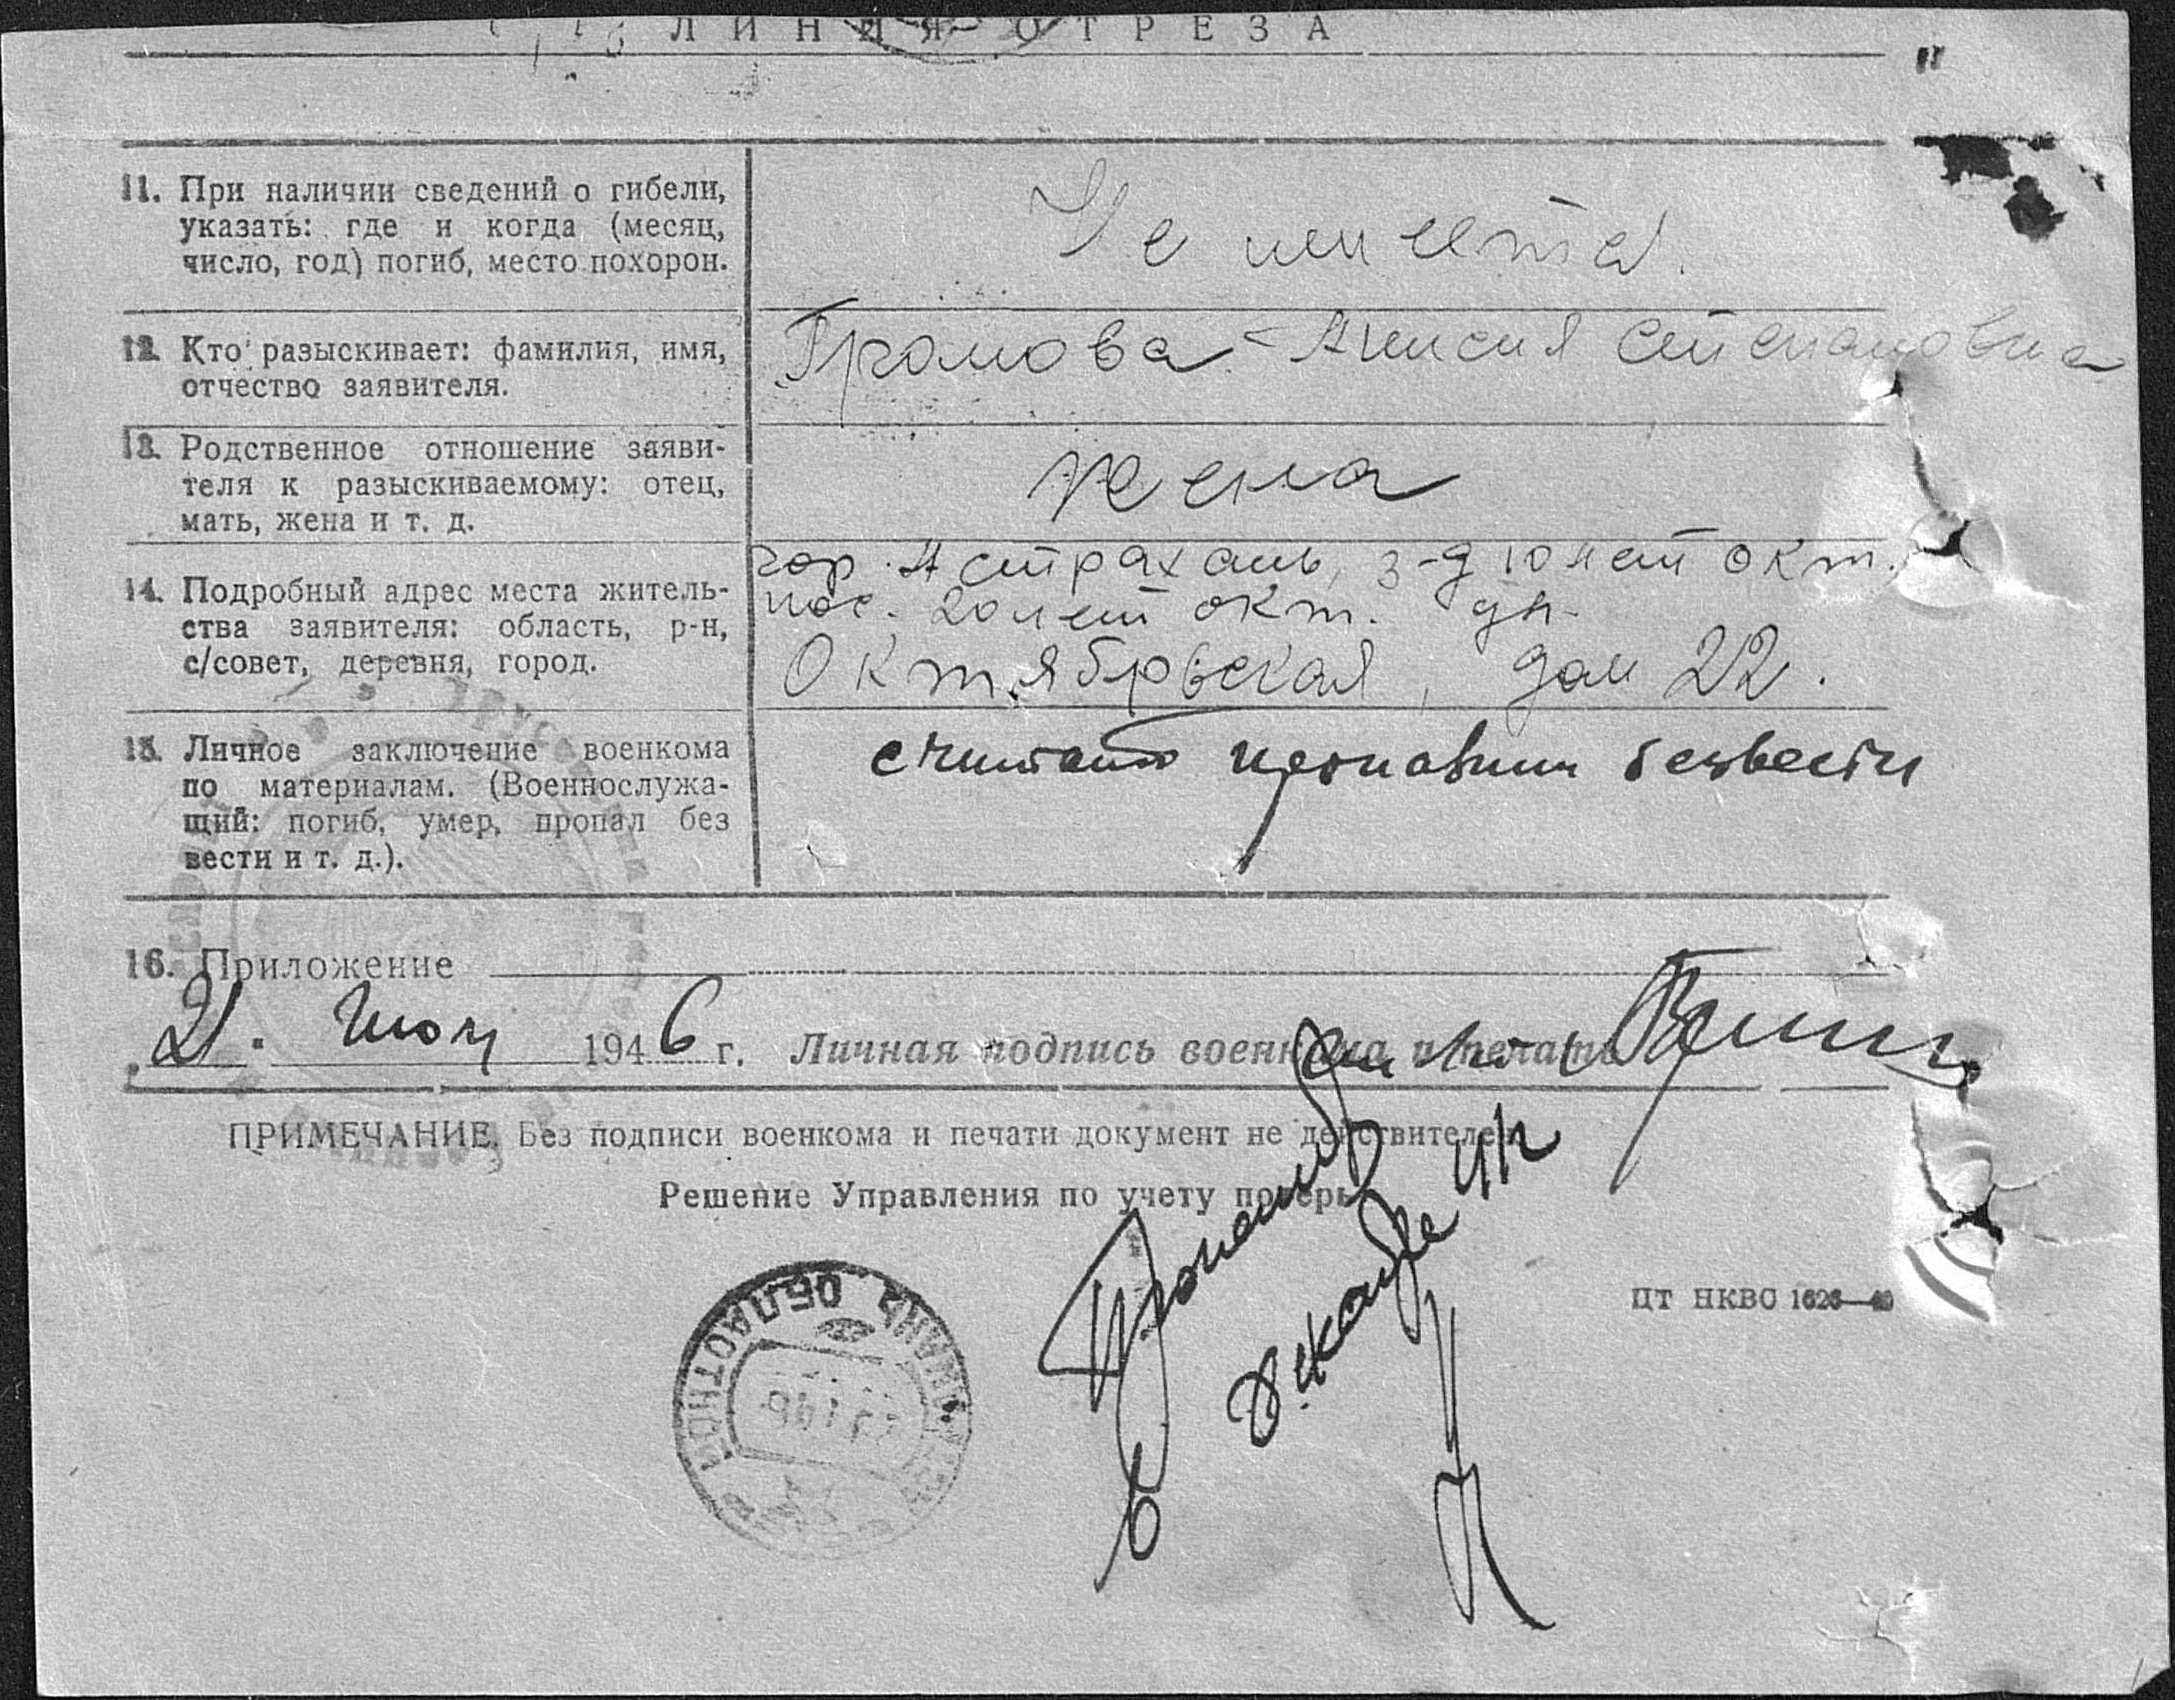 ЛИНИЯ ОТРЕЗА
11. При наличии сведений о гибели,
указать: где и когда (месяц,
число, год) погиб, место похорон.
Не имеется.
12. Кто разыскивает: фамилия, имя,
отчество заявителя.
Громова Анисия Степановна
13. Родственное отношение заяви-
теля к разыскиваемому: отец,
мать, жена и т. д.
жена
14. Подробный адрес места житель-
ства заявителя: область, р-н,
с/совет, деревня, город.
гор. Астрахань, з-д 10 лет окт.
пос. 20 лет окт. ул.
Октябрьская, дом 22.
15. Личное заключение военкома
по материалам. (Военнослужа-
щий: погиб, умер, пропал без
вести и т. д.).
считать пропавшим безвести
16. Приложение
21. 1946 г. Личная подпись военкома и печать
ПРИМЕЧАНИЕ. Без подписи военкома и печати документ не действителен.
Решение Управления по учету потерь
ОБЛАСТНОЙ
ЦТ НКВС 1626—49